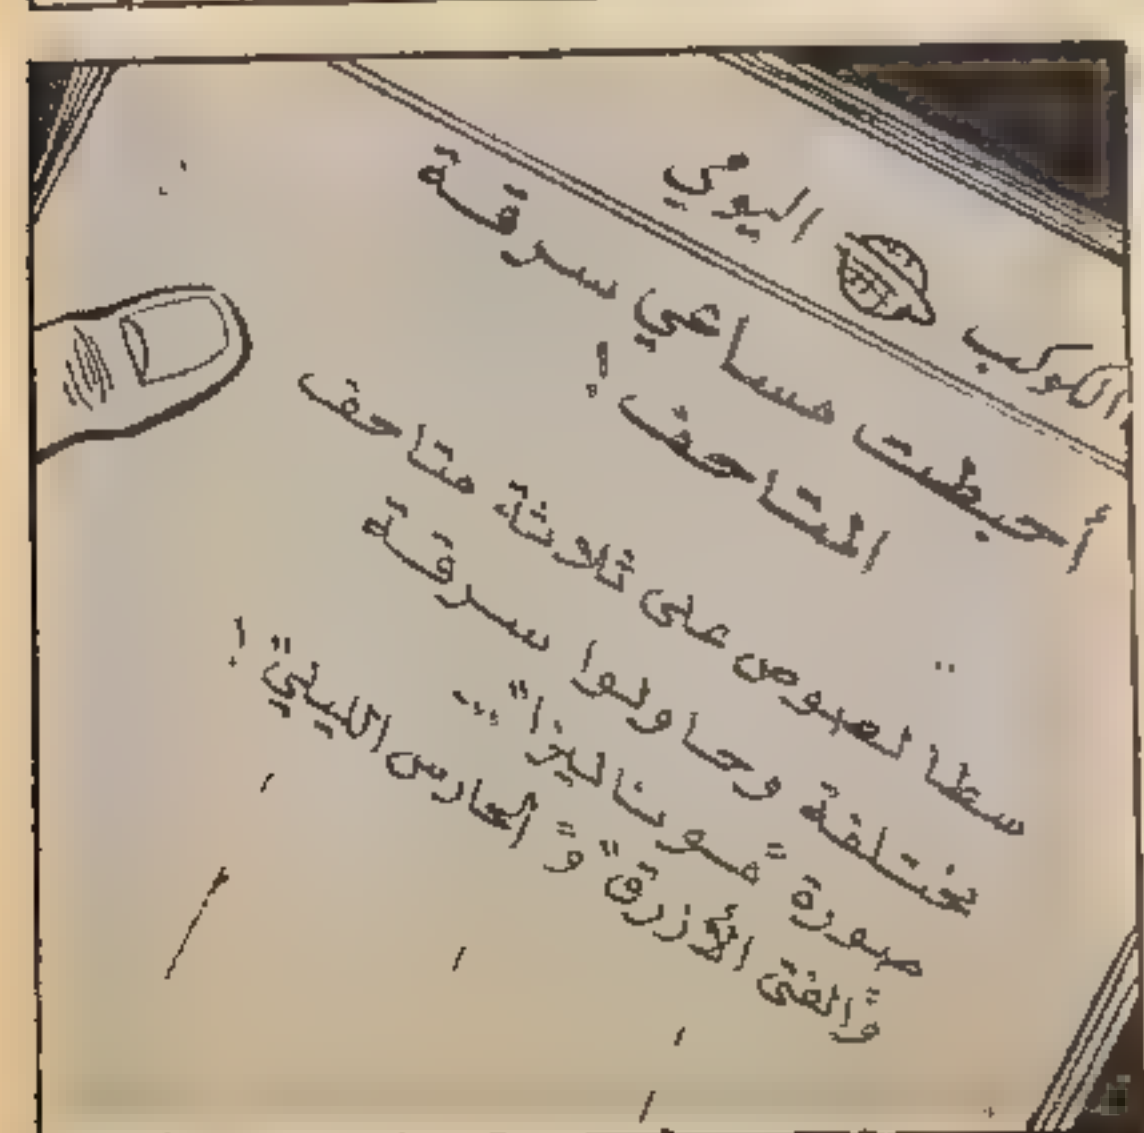 الكوكب اليومي
أحبطت مساعي سرقة
المتاحف!
سطا لصوص على ثلاثة متاحف
مختلفة وحاولوا سرقة
صورة "موناليزا"...
و"الفتى الأزرق" و"الحارس الليلي"!